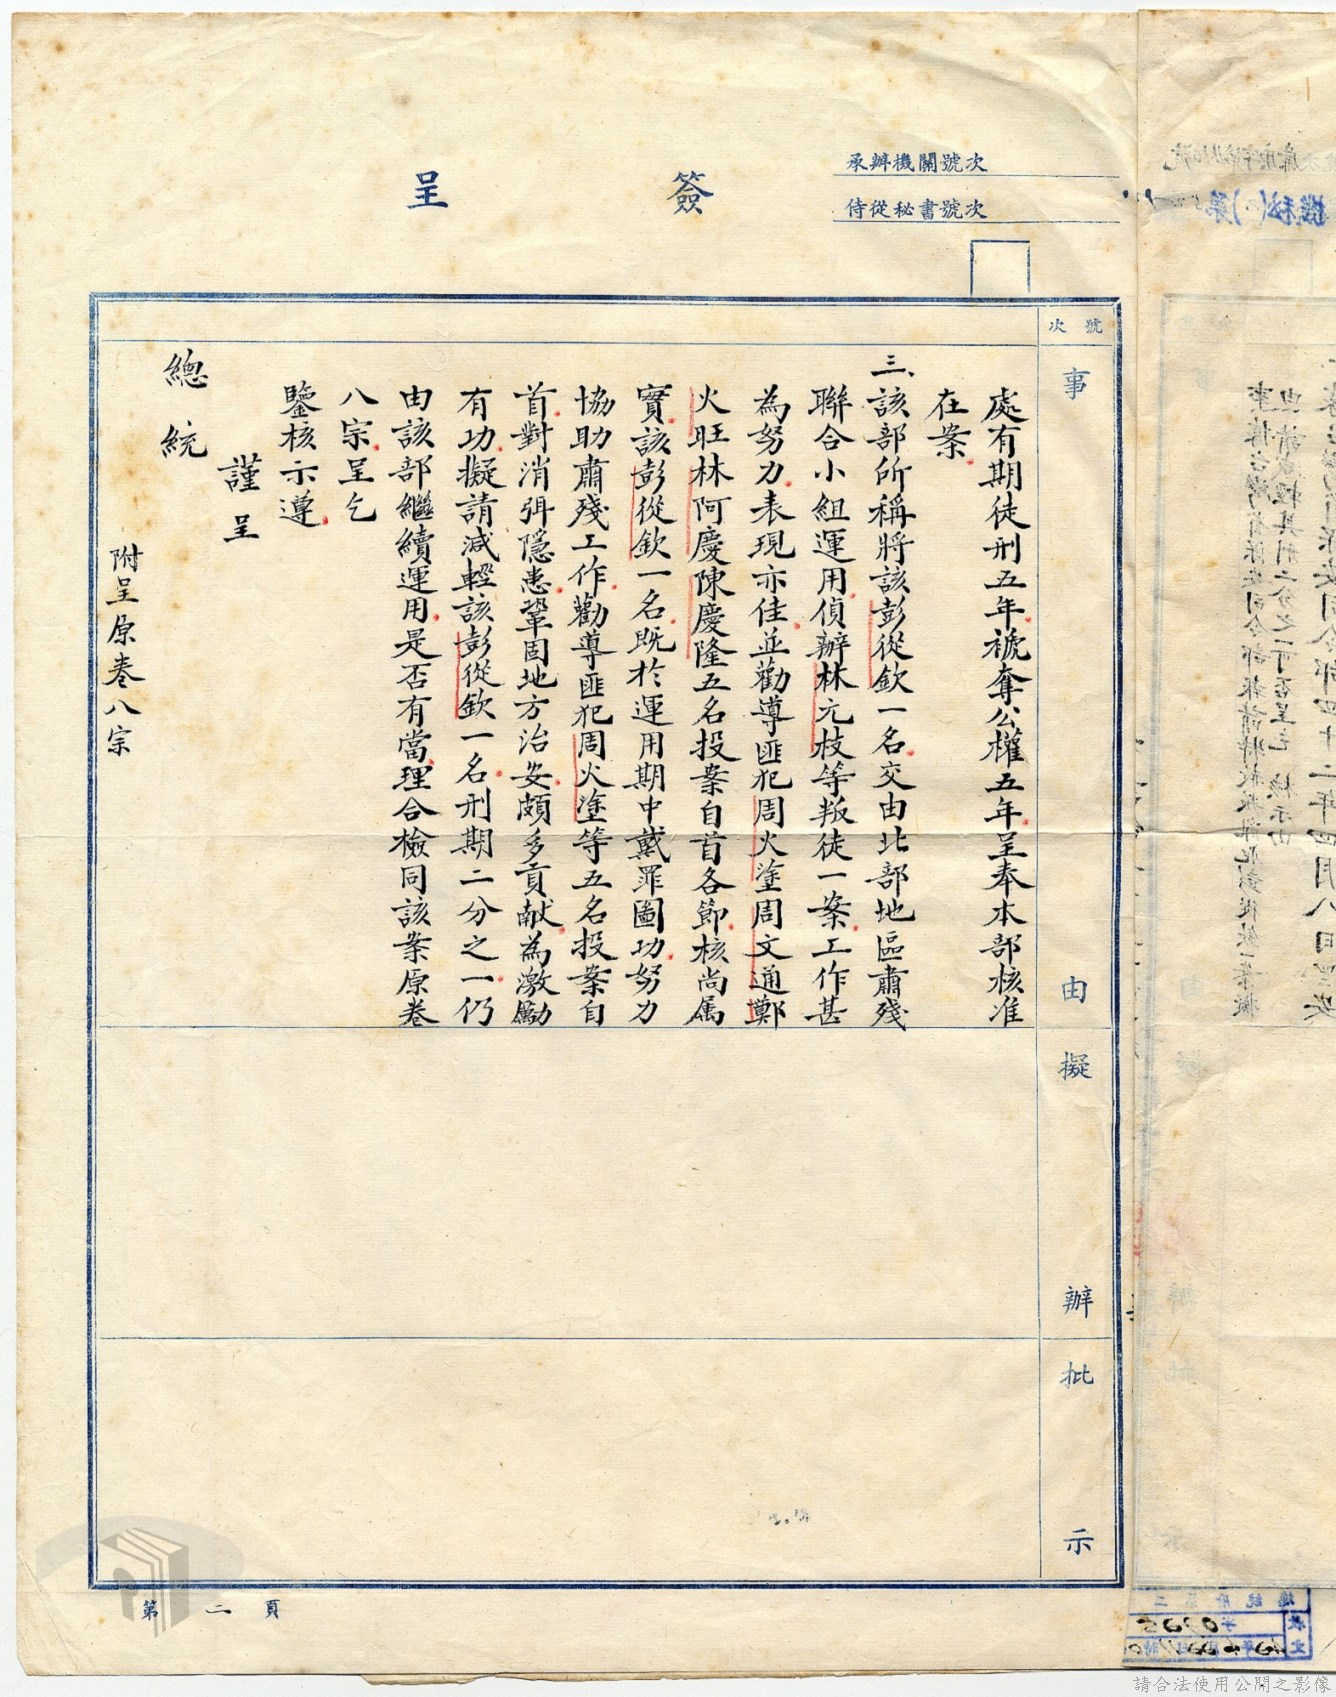 簽呈
承辦機關號次
侍從秘書號次
號次
事由
擬辦
批示
處有期徒刑五年褫奪公權五年呈奉本部核准
在案
三、該部所稱將該彭從欽一名交由北部地區肅殘
聯合小組運用偵辦林元枝等叛徒一案工作甚
為努力表現亦佳並勸導匪犯周火塗周文通鄭
火旺林阿慶陳慶隆五名投案自首各節核尚屬
實該彭從欽一名既於運用期中戴罪圖功努力
協助肅殘工作勸導匪犯周火塗等五名投案自
首對消弭隱患鞏固地方治安頗多貢献為激勵
有功擬請減輕該彭從欽一名刑期二分之一仍
由該部繼續運用是否有當理合檢同該案原卷
八宗呈乞
鑒核示遵
謹呈
總統
附呈原卷八宗
第二頁
請合法使用公開之影像